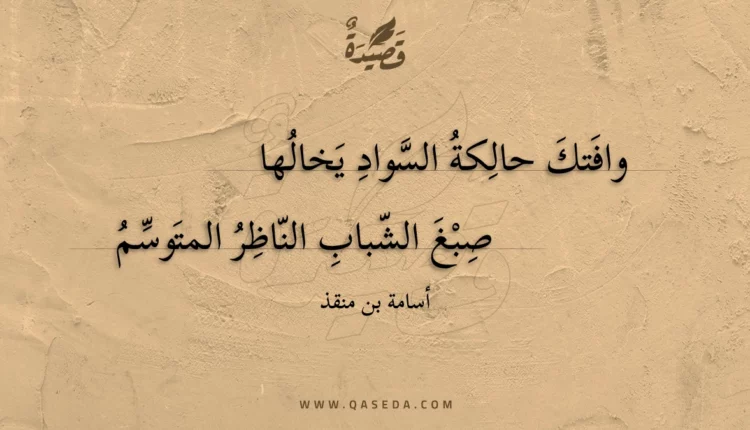 قَصِيْدَةٌ
وافَتكَ حالِكةُ السَّوادِ يَخالُها
صِبْغَ الشّبابِ النّاظِرُ المتَوسِّمُ
أسامة بن منقذ
WWW.QASEDA.COM